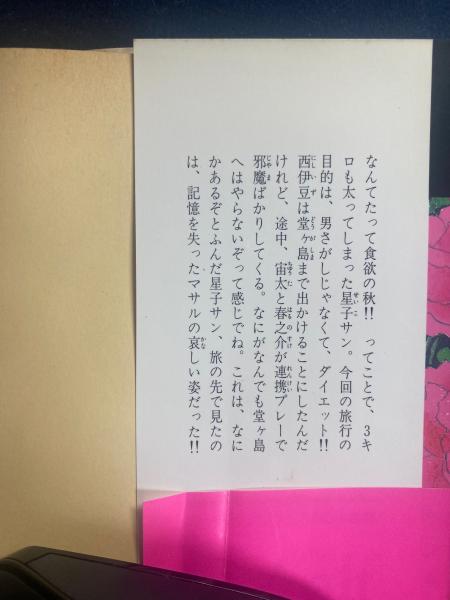 なんてたって食欲の秋!! ってことで、3キ
ロも太ってしまった星子サン。今回の旅行の
目的は、男さがしじゃなくて、ダイエット!!
西伊豆は堂ヶ島まで出かけることにしたんだ
けれど、途中、宙太と春之介が連携プレーで
邪魔ばかりしてくる。なにがなんでも堂ヶ島
へはやらないぞって感じでね。これは、なに
かあるぞとふんだ星子サン、旅の先で見たの
は、記憶を失ったマサルの哀しい姿だった!!